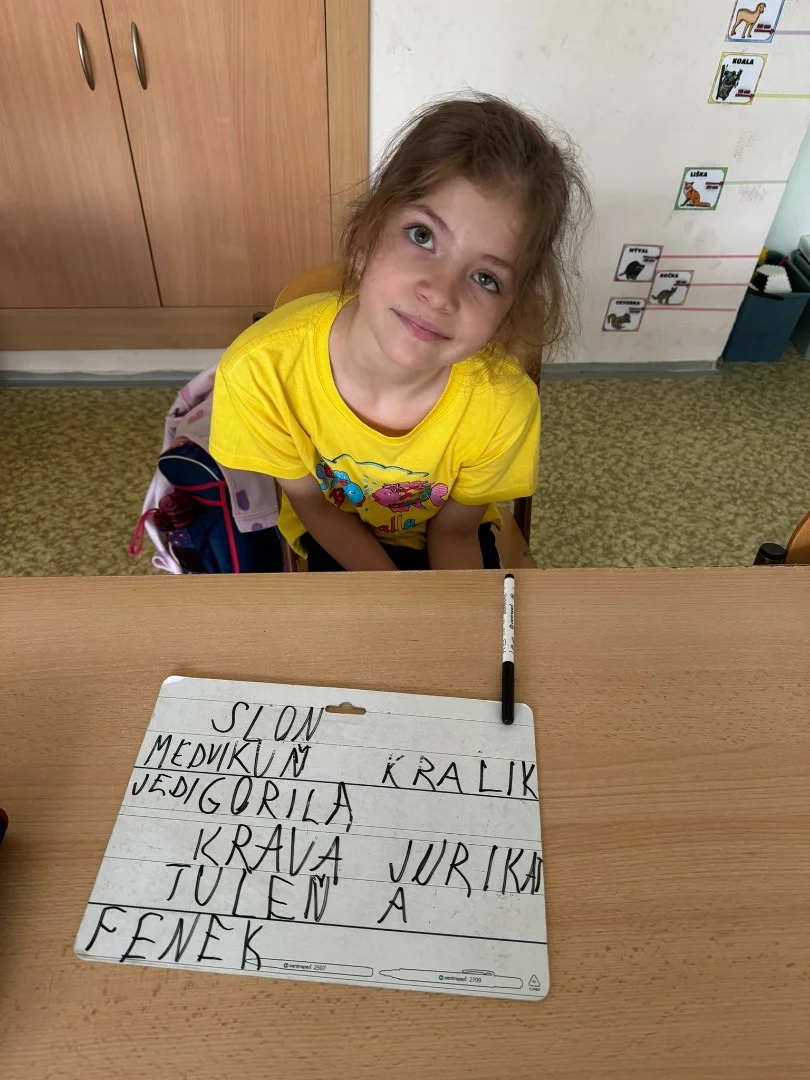 KOALA
LIŠKA
KOČKA
SLON
MEDVIKUŇ KRALIK
JEDIGORILA
KRAVA JURIKAT
TULEŇ A
FENEK
centropen 2507
centropen 2709